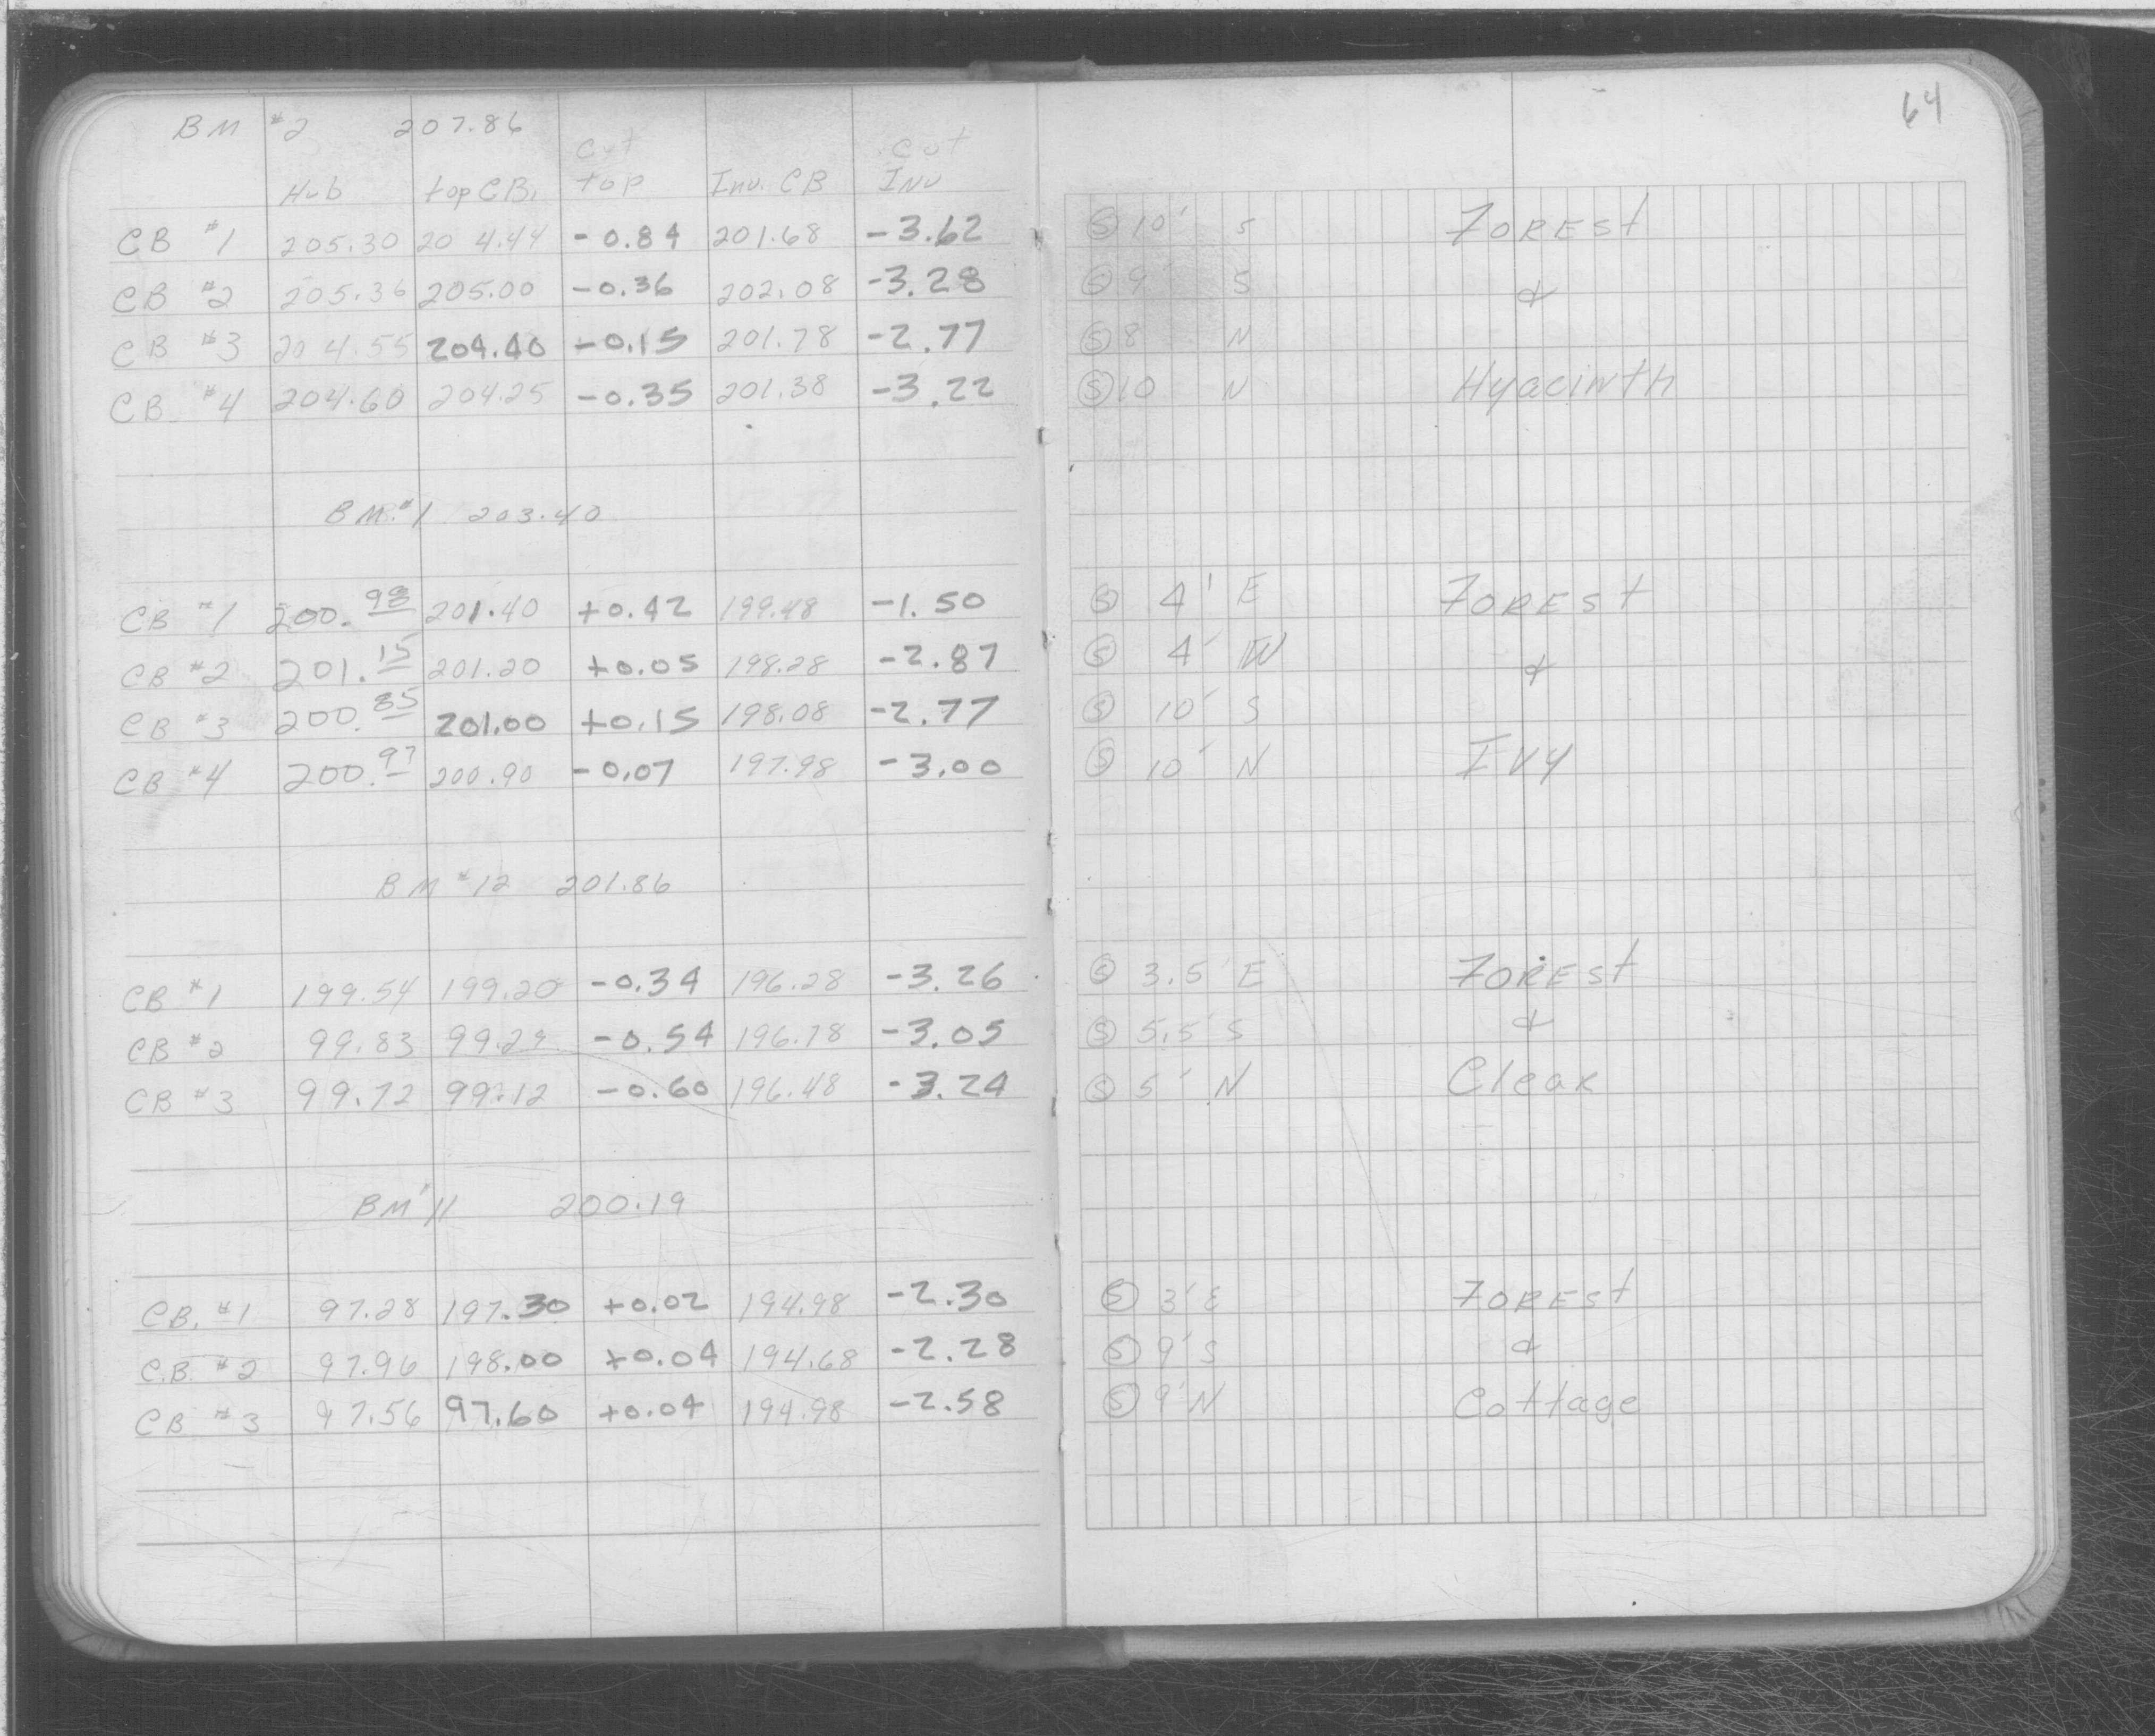 64
BM #2 207.86
Cut Cut
Hub top CB. top Inv. CB Inv
CB #1 205.30 204.44 -0.84 201.68 -3.62 Ⓢ 10' S Forest
CB #2 205.36 205.00 -0.36 202.08 -3.28 Ⓢ 9' S &
CB #3 204.55 204.40 -0.15 201.78 -2.77 Ⓢ 8 N
CB #4 204.60 204.25 -0.35 201.38 -3.22 Ⓢ 10 N Hyacinth
BM.#1 203.40
CB #1 200.98 201.40 +0.42 199.48 -1.50 Ⓢ 4' E Forest
CB #2 201.15 201.20 +0.05 198.28 -2.87 Ⓢ 4' W &
CB #3 200.85 201.00 +0.15 198.08 -2.77 Ⓢ 10' S
CB #4 200.97 200.90 -0.07 197.98 -3.00 Ⓢ 10' N Ivy
BM #12 201.86
CB #1 199.54 199.20 -0.34 196.28 -3.26 Ⓢ 3.5' E Forest
CB #2 99.83 99.29 -0.54 196.78 -3.05 Ⓢ 5.5' S &
CB #3 99.72 99.12 -0.60 196.48 -3.24 Ⓢ 5' N Clear
BM #11 200.19
CB. #1 97.28 197.30 +0.02 194.98 -2.30 Ⓢ 3' E Forest
C.B. #2 97.96 198.00 +0.04 194.68 -2.28 Ⓢ 9' S &
CB #3 97.56 97.60 +0.04 194.98 -2.58 Ⓢ 9' N Cottage